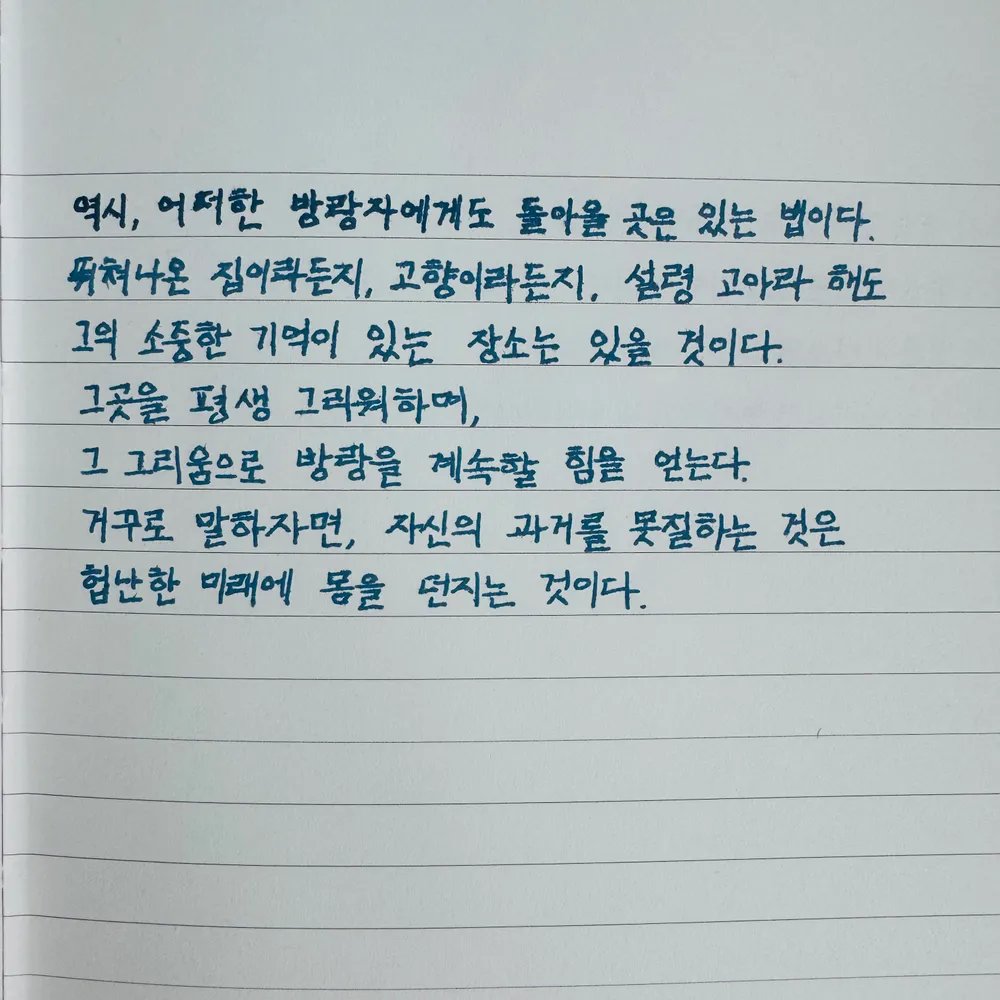 역시, 어떠한 방랑자에게도 돌아올 곳은 있는 법이다.
뛰쳐나온 집이라든지, 고향이라든지, 설령 고아라 해도
그의 소중한 기억이 있는 장소는 있을 것이다.
그곳을 평생 그리워하며,
그 그리움으로 방랑을 계속할 힘을 얻는다.
거꾸로 말하자면, 자신의 과거를 못질하는 것은
험난한 미래에 몸을 던지는 것이다.